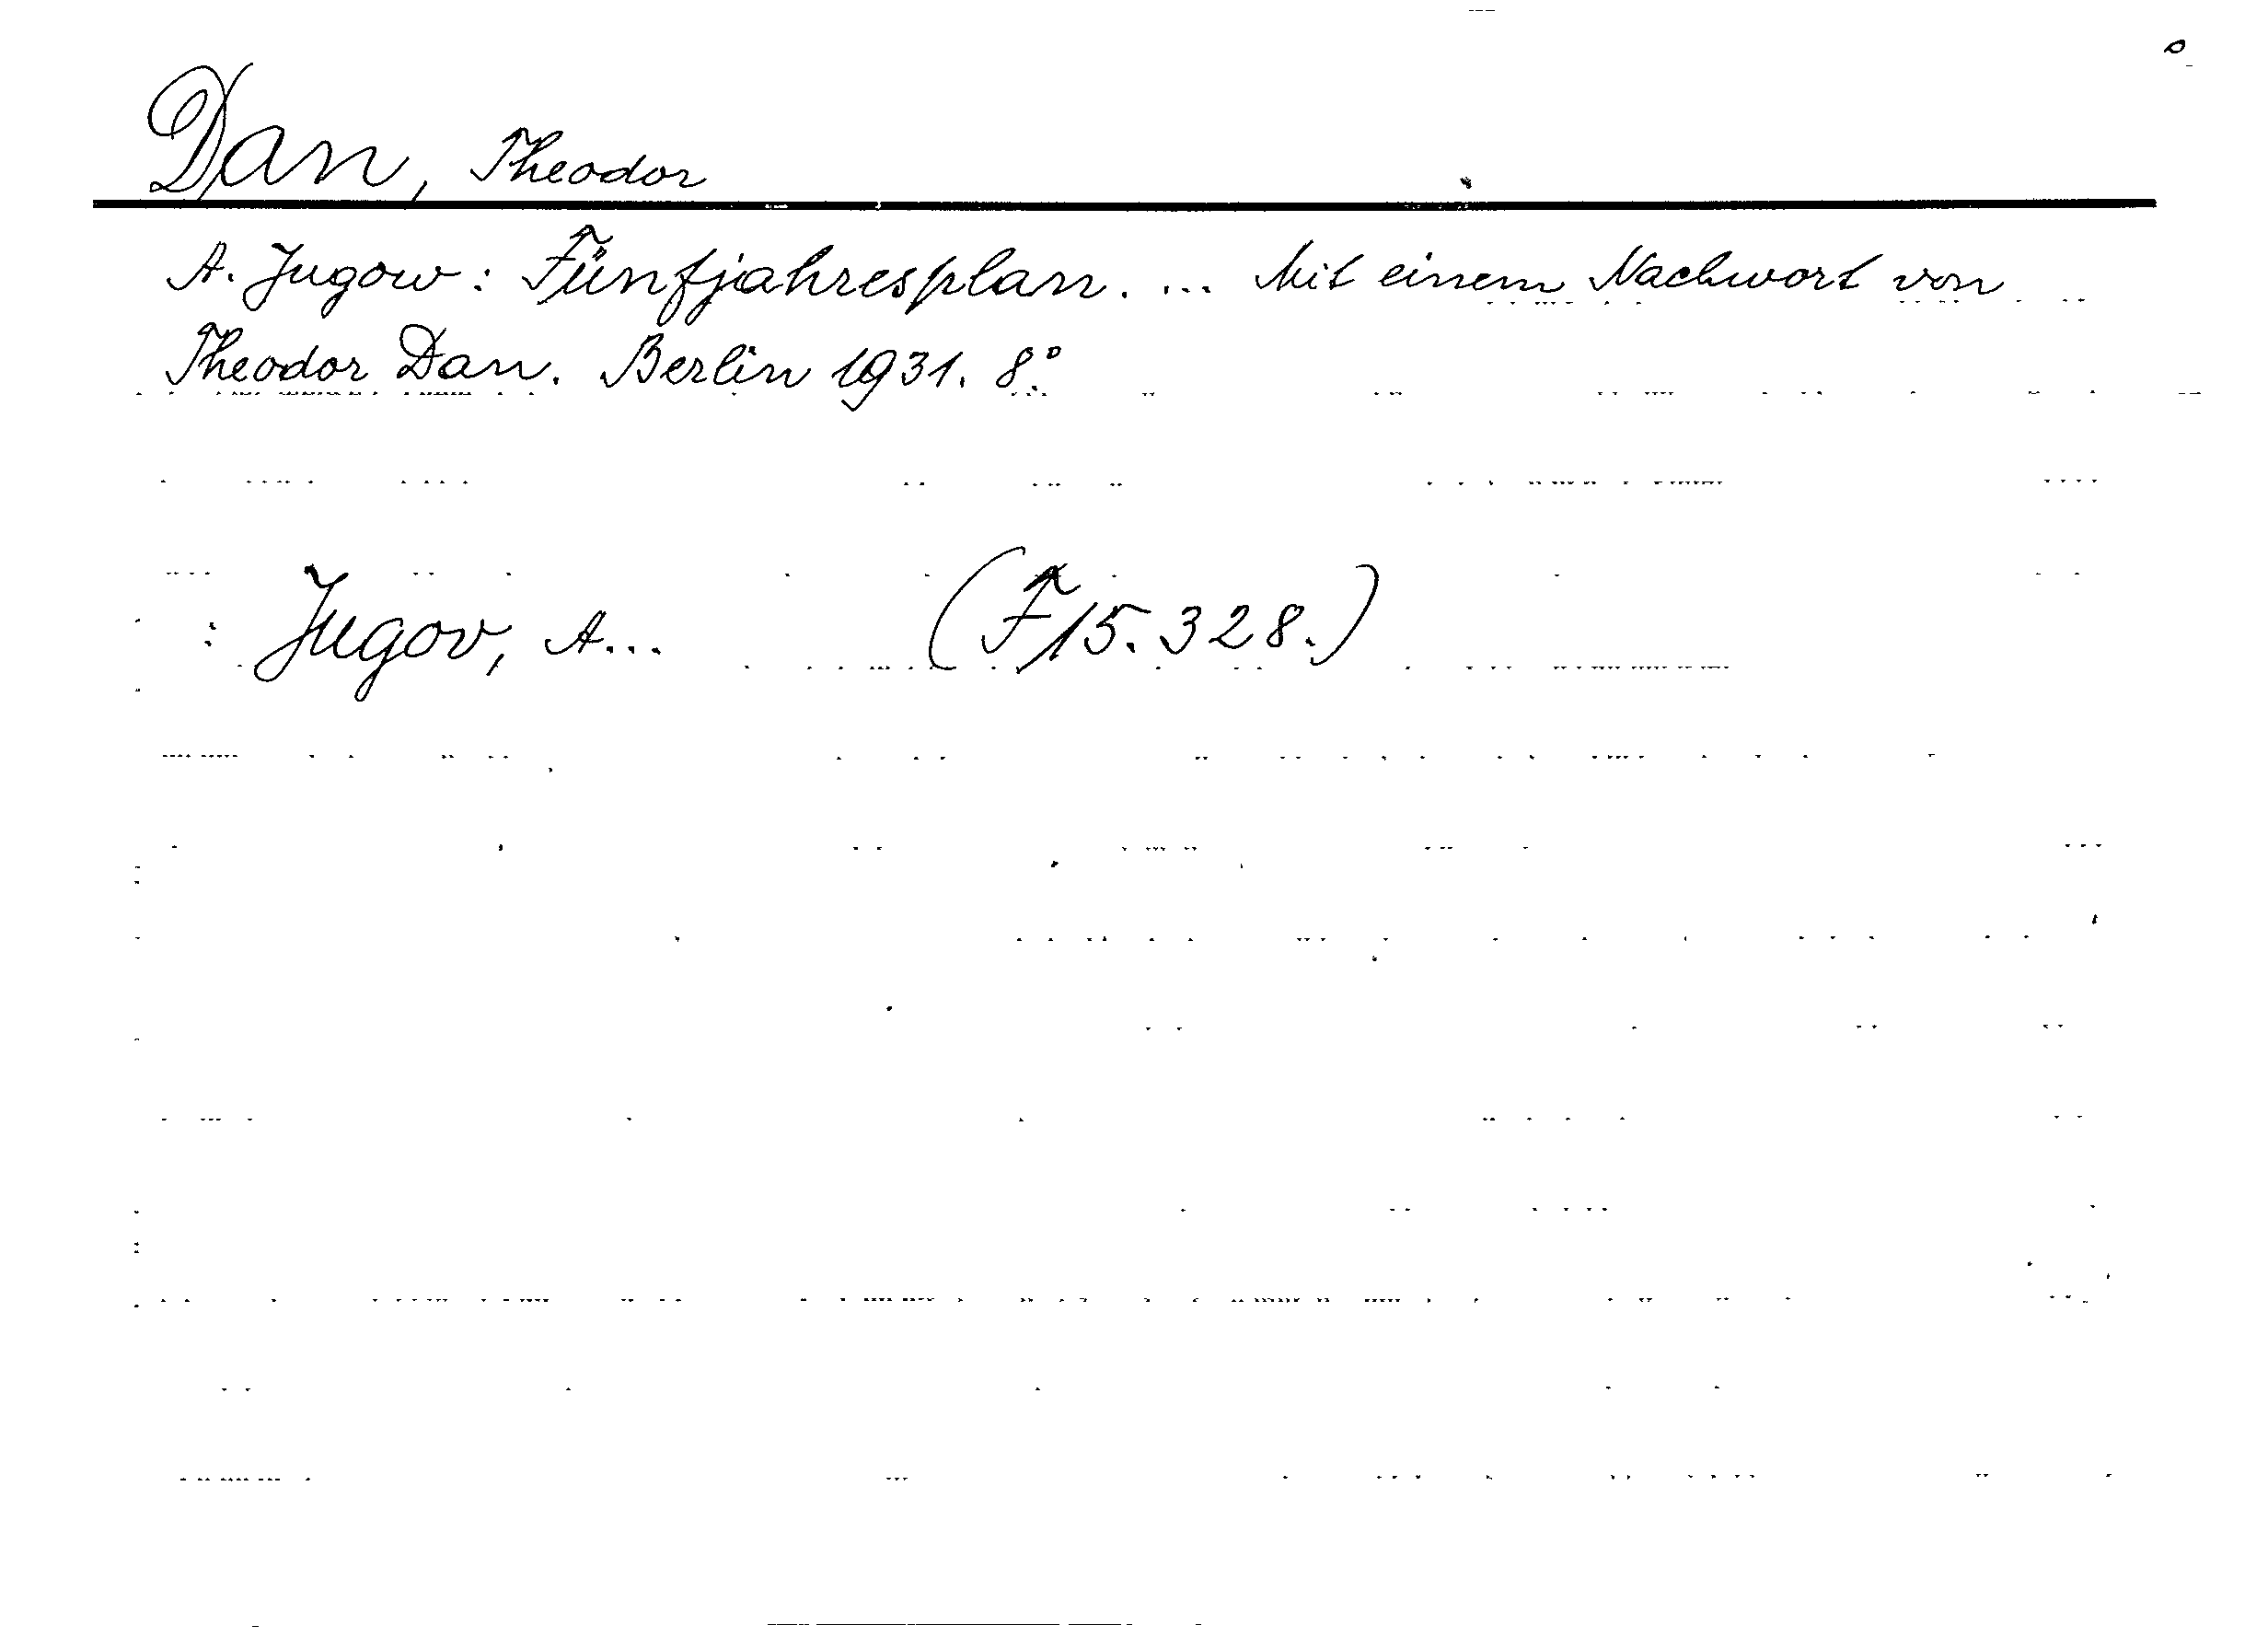 Dan, Theodor
A. Jugow: Fünfjahresplan. ... Mit einem Nachwort von
Theodor Dan. Berlin 1931. 8.°
: Jugov, A... (F 15.328.)